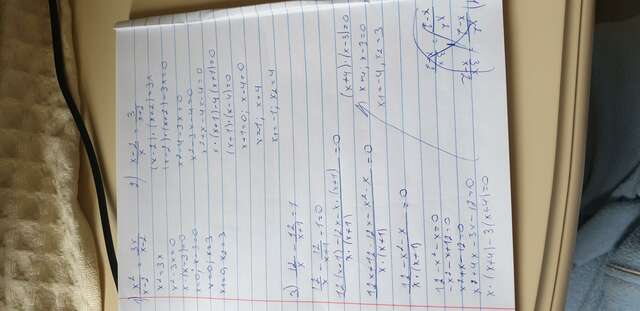 1) x²/x-2 = 3x/x-2
x²=3x
x²-3x=0
x·(x-3)=0
x=0, x-3=0
x=0, x=3
x₁=0, x₂=3
2) x-2/x = 3/x+2
(x-2)·(x+2)=3x
(x-2)·(x+2)-3x=0
x²-4-3x=0
x²-3x-4=0
x²+x-4x-4=0
x·(x+1)-4(x+1)=0
(x+1)·(x-4)=0
x+1=0, x-4=0
x=-1, x=4
x₁=-1, x₂=4
3) 12/x - 12/x+1 = 1
12/x - 12/x+1 - 1=0
12(x+1)-12x-x·(x+1)/x·(x+1) =0
12x+12-12x-x²-x/x·(x+1) =0
12-x²-x/x·(x+1) =0
12-x²-x=0
-x²-x+12=0
x²+x-12=0
x²+4x-3x-12=0
x·(x+4)-3(x+4)=0
(x+4)·(x-3)=0
x+4=0, x-3=0
x₁=-4, x₂=3